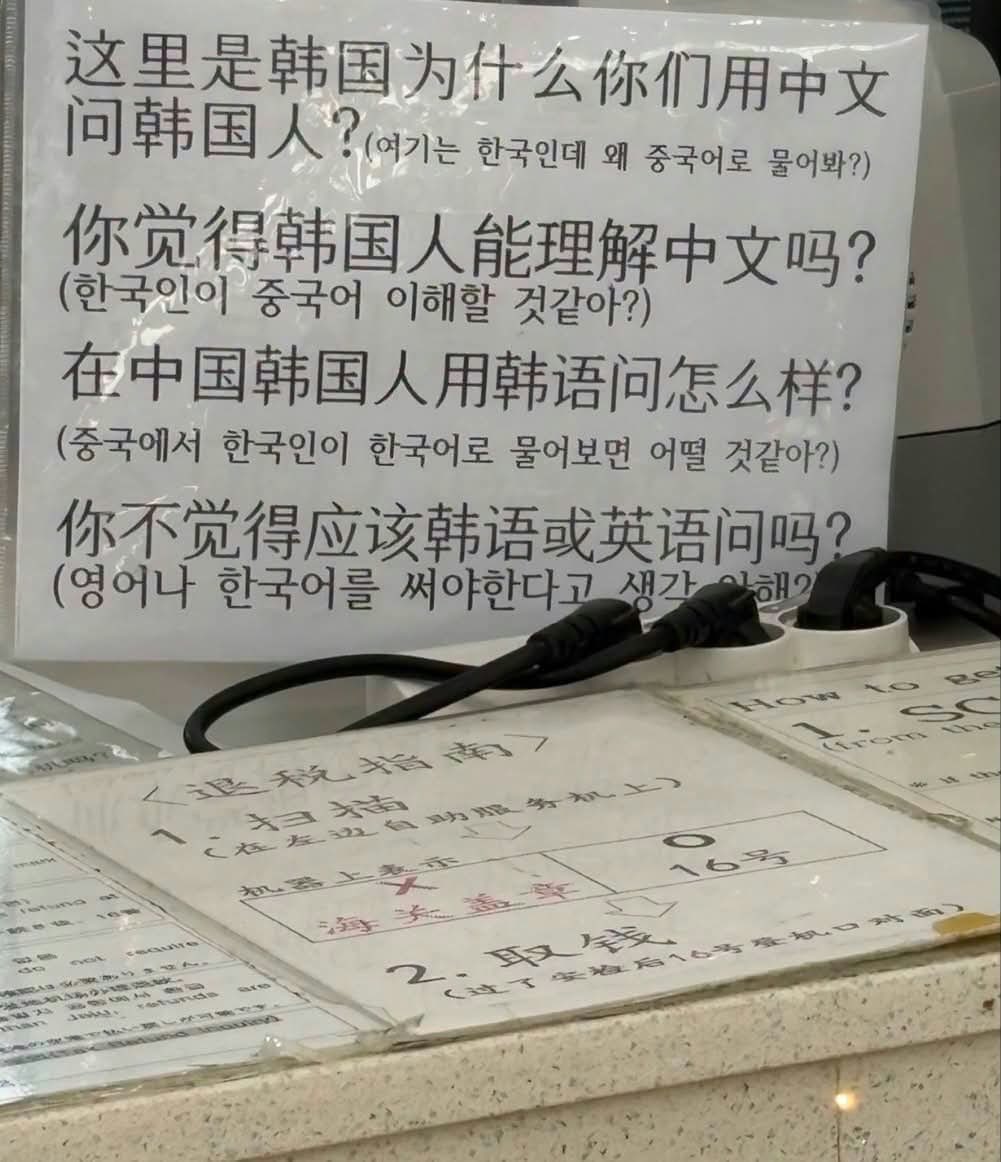 这里是韩国为什么你们用中文
问韩国人?(여기는 한국인데 왜 중국어로 물어봐?)
你觉得韩国人能理解中文吗?
(한국인이 중국어 이해할 것같아?)
在中国韩国人用韩语问怎么样?
(중국에서 한국인이 한국어로 물어보면 어떨 것같아?)
你不觉得应该韩语或英语问吗?
(영어나 한국어를 써야한다고 생각
<退税指南>
1. 扫描
(在左边自助服务机上)
机器上表示
X
海关盖章
O
16号
2. 取钱
(过了安检后16号登机口对面)
How to ge
1. SC
(from the
* if th
refund at
do not require
refunds are